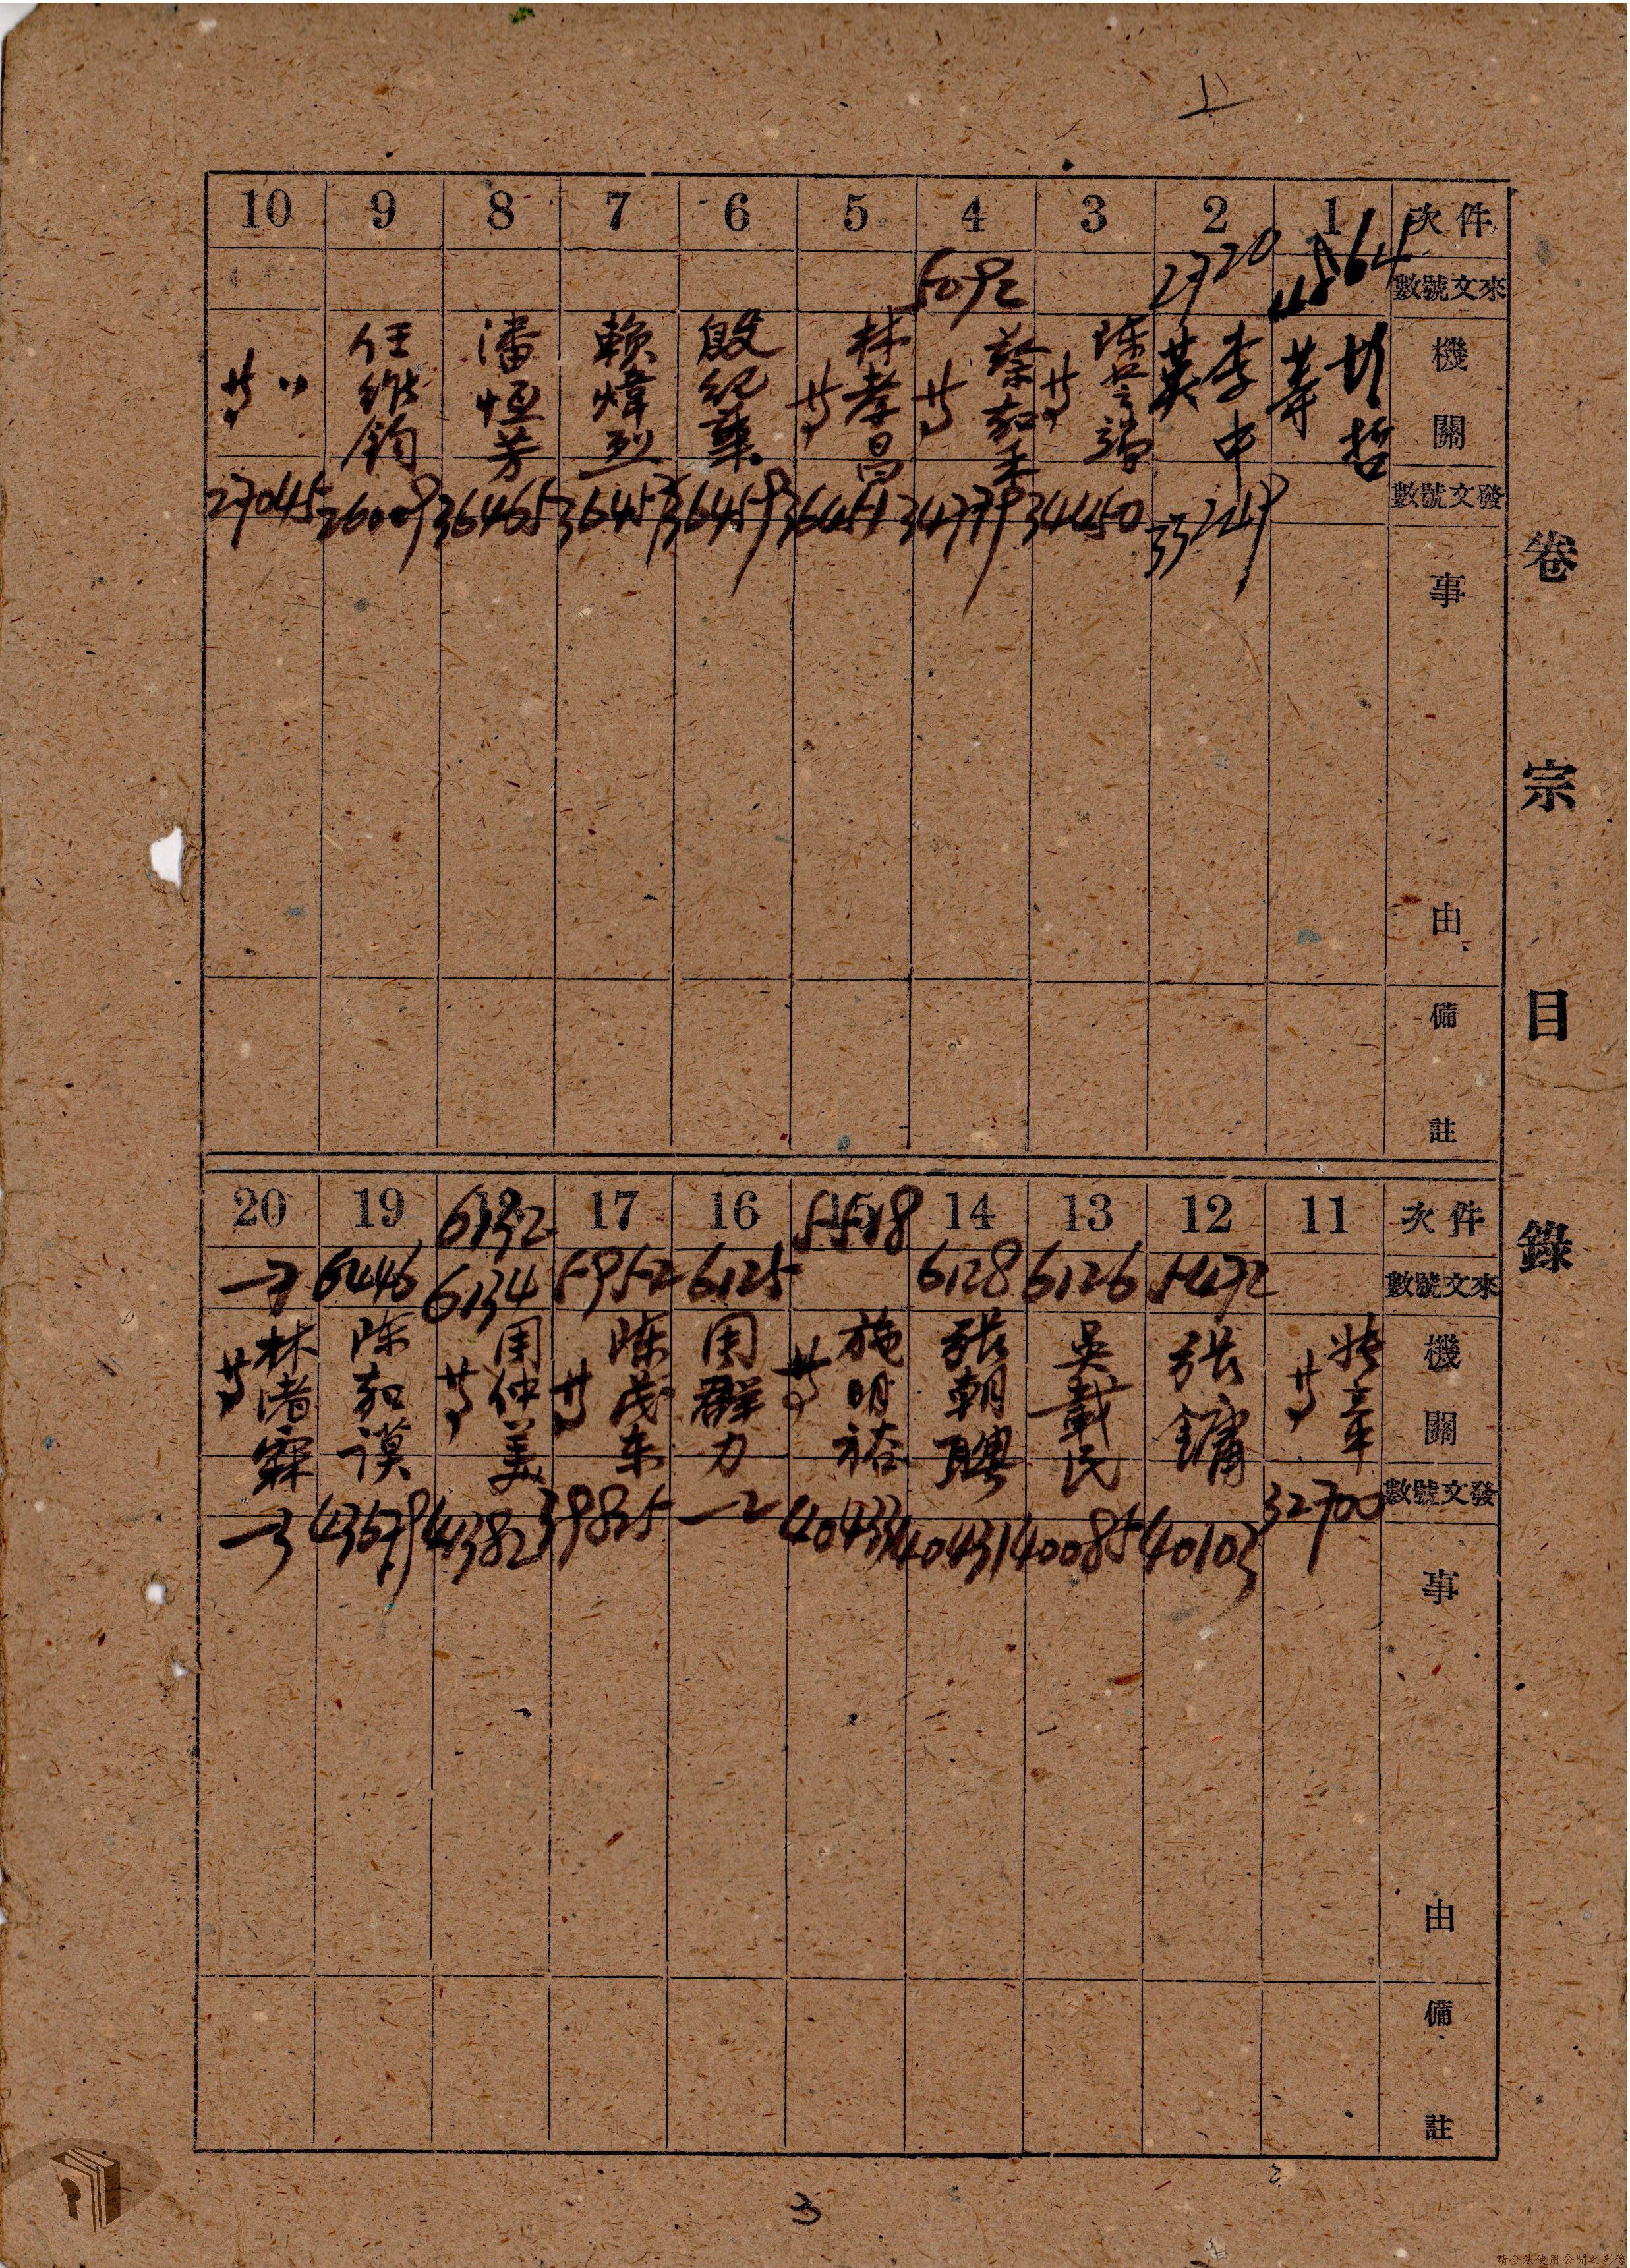 上
卷宗目錄
件次 1 2 3 4 5 6 7 8 9 10
來文號數 2720 5092
機關
李中英
蔡和
林孝昌 等
殷紀華
賴煒烈
潘恒芳
任維鈞
〃 等
發文號數 33249 34450 34779 36451 36459 36457 36465 26009 27045
事由
備註
件次 11 12 13 14 15 16 17 18 19 20
來文號數 5472 6126 6128 5518 6125 5952 6132 6134 6446
機關
張鏞
吳戴民
張朝聘
施明裕 等
周群力
陳茂東 等
周仲美 等
陳和謨
林渚霖 等
發文號數 32700 40103 40085 40431 40433 39825 41382 43679
事由
備註
3
請合法使用公開之影像